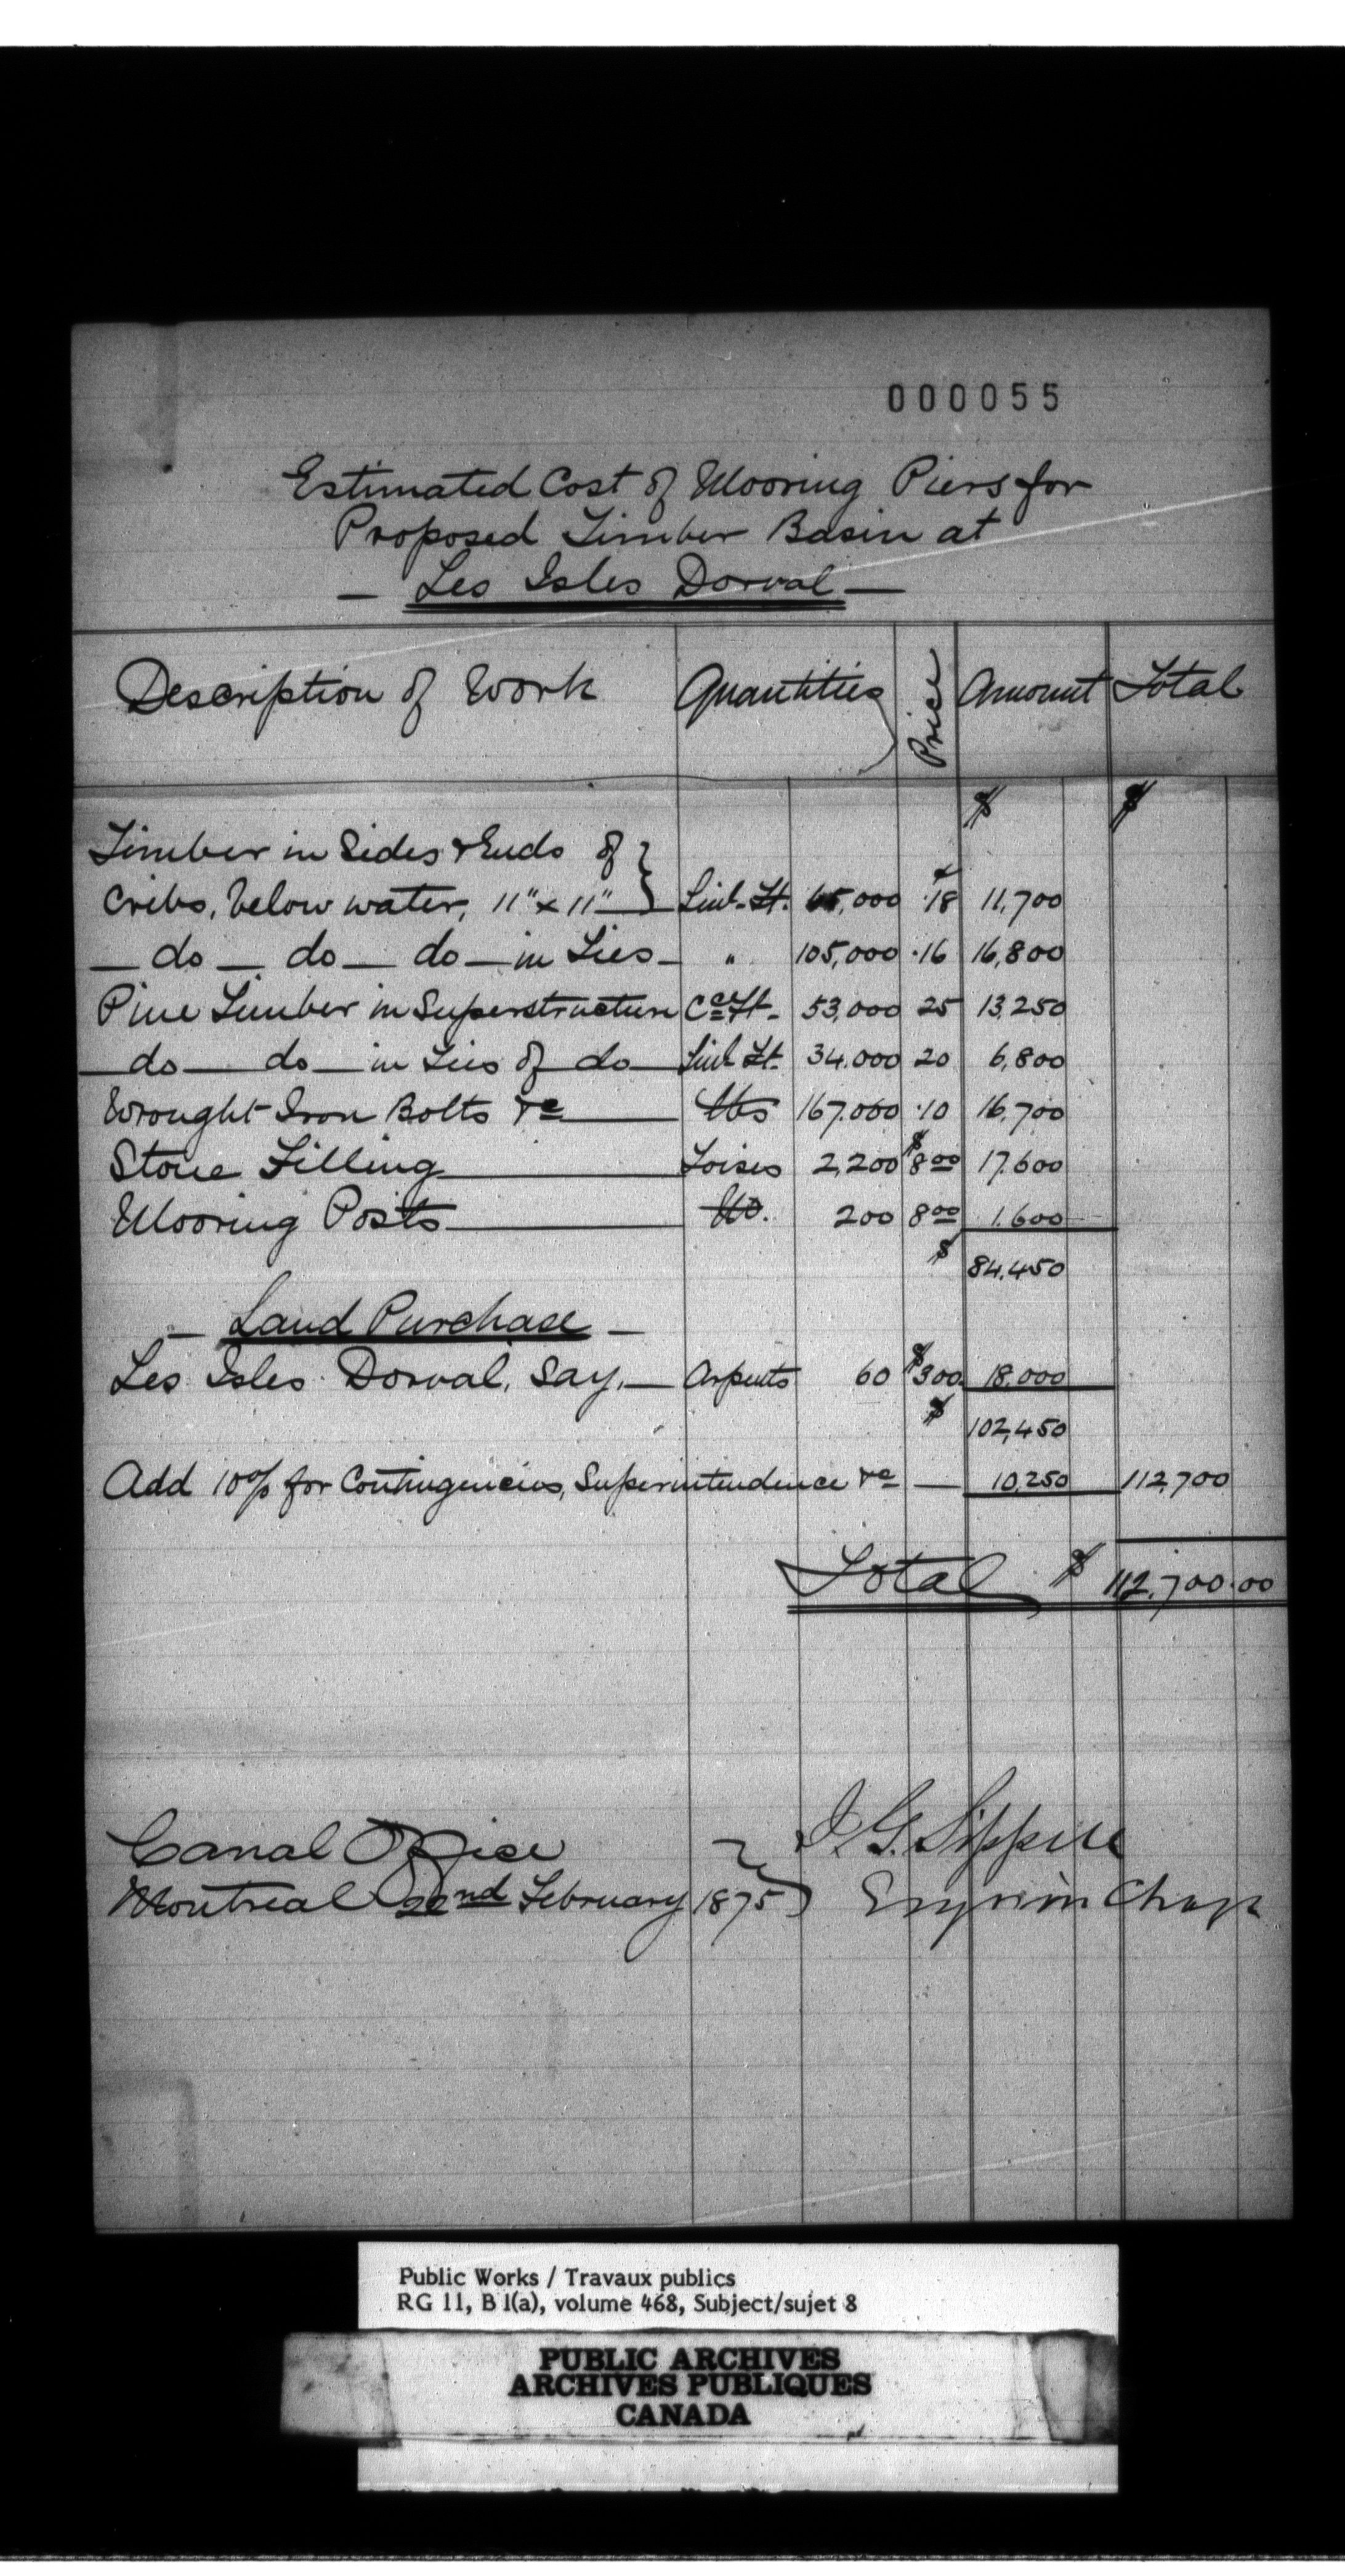 000055
Estimated Cost of Mooring Piers for
Proposed Timber Basin at
— Les Isles Dorval —
Description of Work Quantities Price Amount Total
$ $
Timber in Sides & Ends of }
Cribs, below water, 11" x 11" } Linl. Ft. 65,000 ¢ .18 11,700
— do — do — do — in Ties — " 105,000 .16 16,800
Pine Timber in Superstructure Cce Ft. 53,000 25 13,250
— do — do — in Ties of do — Linl Ft. 34.000 20 6,800
Wrought Iron Bolts &c — lbs 167.000 .10 16,700
Stone Filling — Toises 2,200 $8 00 17,600
Mooring Posts — No. 200 8 00 1.600
$ 84,450
— Land Purchase —
Les Isles Dorval, say, — Arpents 60 $300 18,000
$ 102,450
Add 10% for Contingencies, Superintendence &c — 10,250 112,700
Total $ 112,700.00
Canal Office
Montreal 22nd February 1875 }
J. G. Sippell
Engr in Charge
Public Works / Travaux publics
RG 11, B 1(a), volume 468, Subject/sujet 8
PUBLIC ARCHIVES
ARCHIVES PUBLIQUES
CANADA